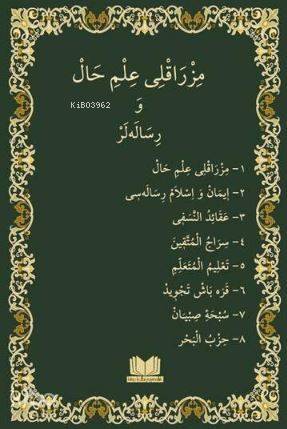 مِزْرَاقْلِى عِلْمِ حَالْ
KiB03962
وَ
رِسَالَەلَرْ
١- مِزْرَاقْلِى عِلْمِ حَالْ
٢- إِيمَانْ وَ إِسْلاَمْ رِسَالَەسِى
٣- عَقَائِدُ النَّسَفِى
٤- سِرَاجُ الْمُتَّقِينَ
٥- تَعْلِيمُ الْمُتَعَلِّمِ
٦- قَرَه بَاشْ تَجْوِيدْ
٧- سُبْحَةِ صِبْيَانْ
٨- حِزْبُ الْبَحْر